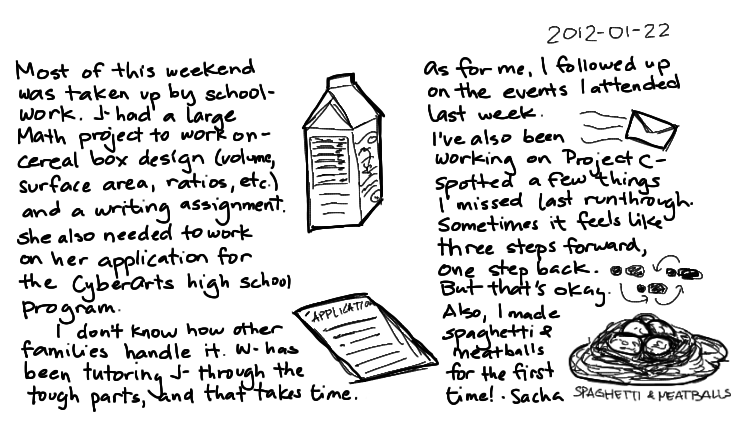 2012-01-22
Most of this weekend
was taken up by school-
work. J- had a large
Math project to work on -
cereal box design (volume,
surface area, ratios, etc.)
and a writing assignment.
She also needed to work
on her application for
the CyberArts high school
program.
I don't know how other
families handle it. W- has
been tutoring J- through the
tough parts, and that takes time.
MILK
APPLICATION
As for me, I followed up
on the events I attended
last week.
I've also been
working on Project C-
spotted a few things
I missed last runthrough.
Sometimes it feels like
three steps forward,
one step back.
But that's okay.
Also, I made
spaghetti &
meatballs
for the first
time! - Sacha
SPAGHETTI & MEATBALLS